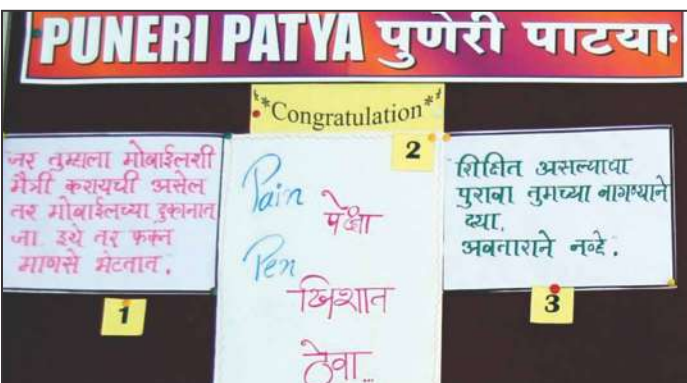 PUNERI PATYA पुणेरी पाटया
*Congratulation*
जर तुम्हाला मोबाईलशी
मैत्री करायची असेल
तर मोबाईलच्या दुकानात
जा. इथे तर फक्त
माणसे भेटतात.
1
2
Pain
पेक्षा
Pen
खिशात
ठेवा...
शिक्षित असल्याचा
पुरावा तुमच्या वागण्याने
द्या.
अवताराने नव्हे.
3